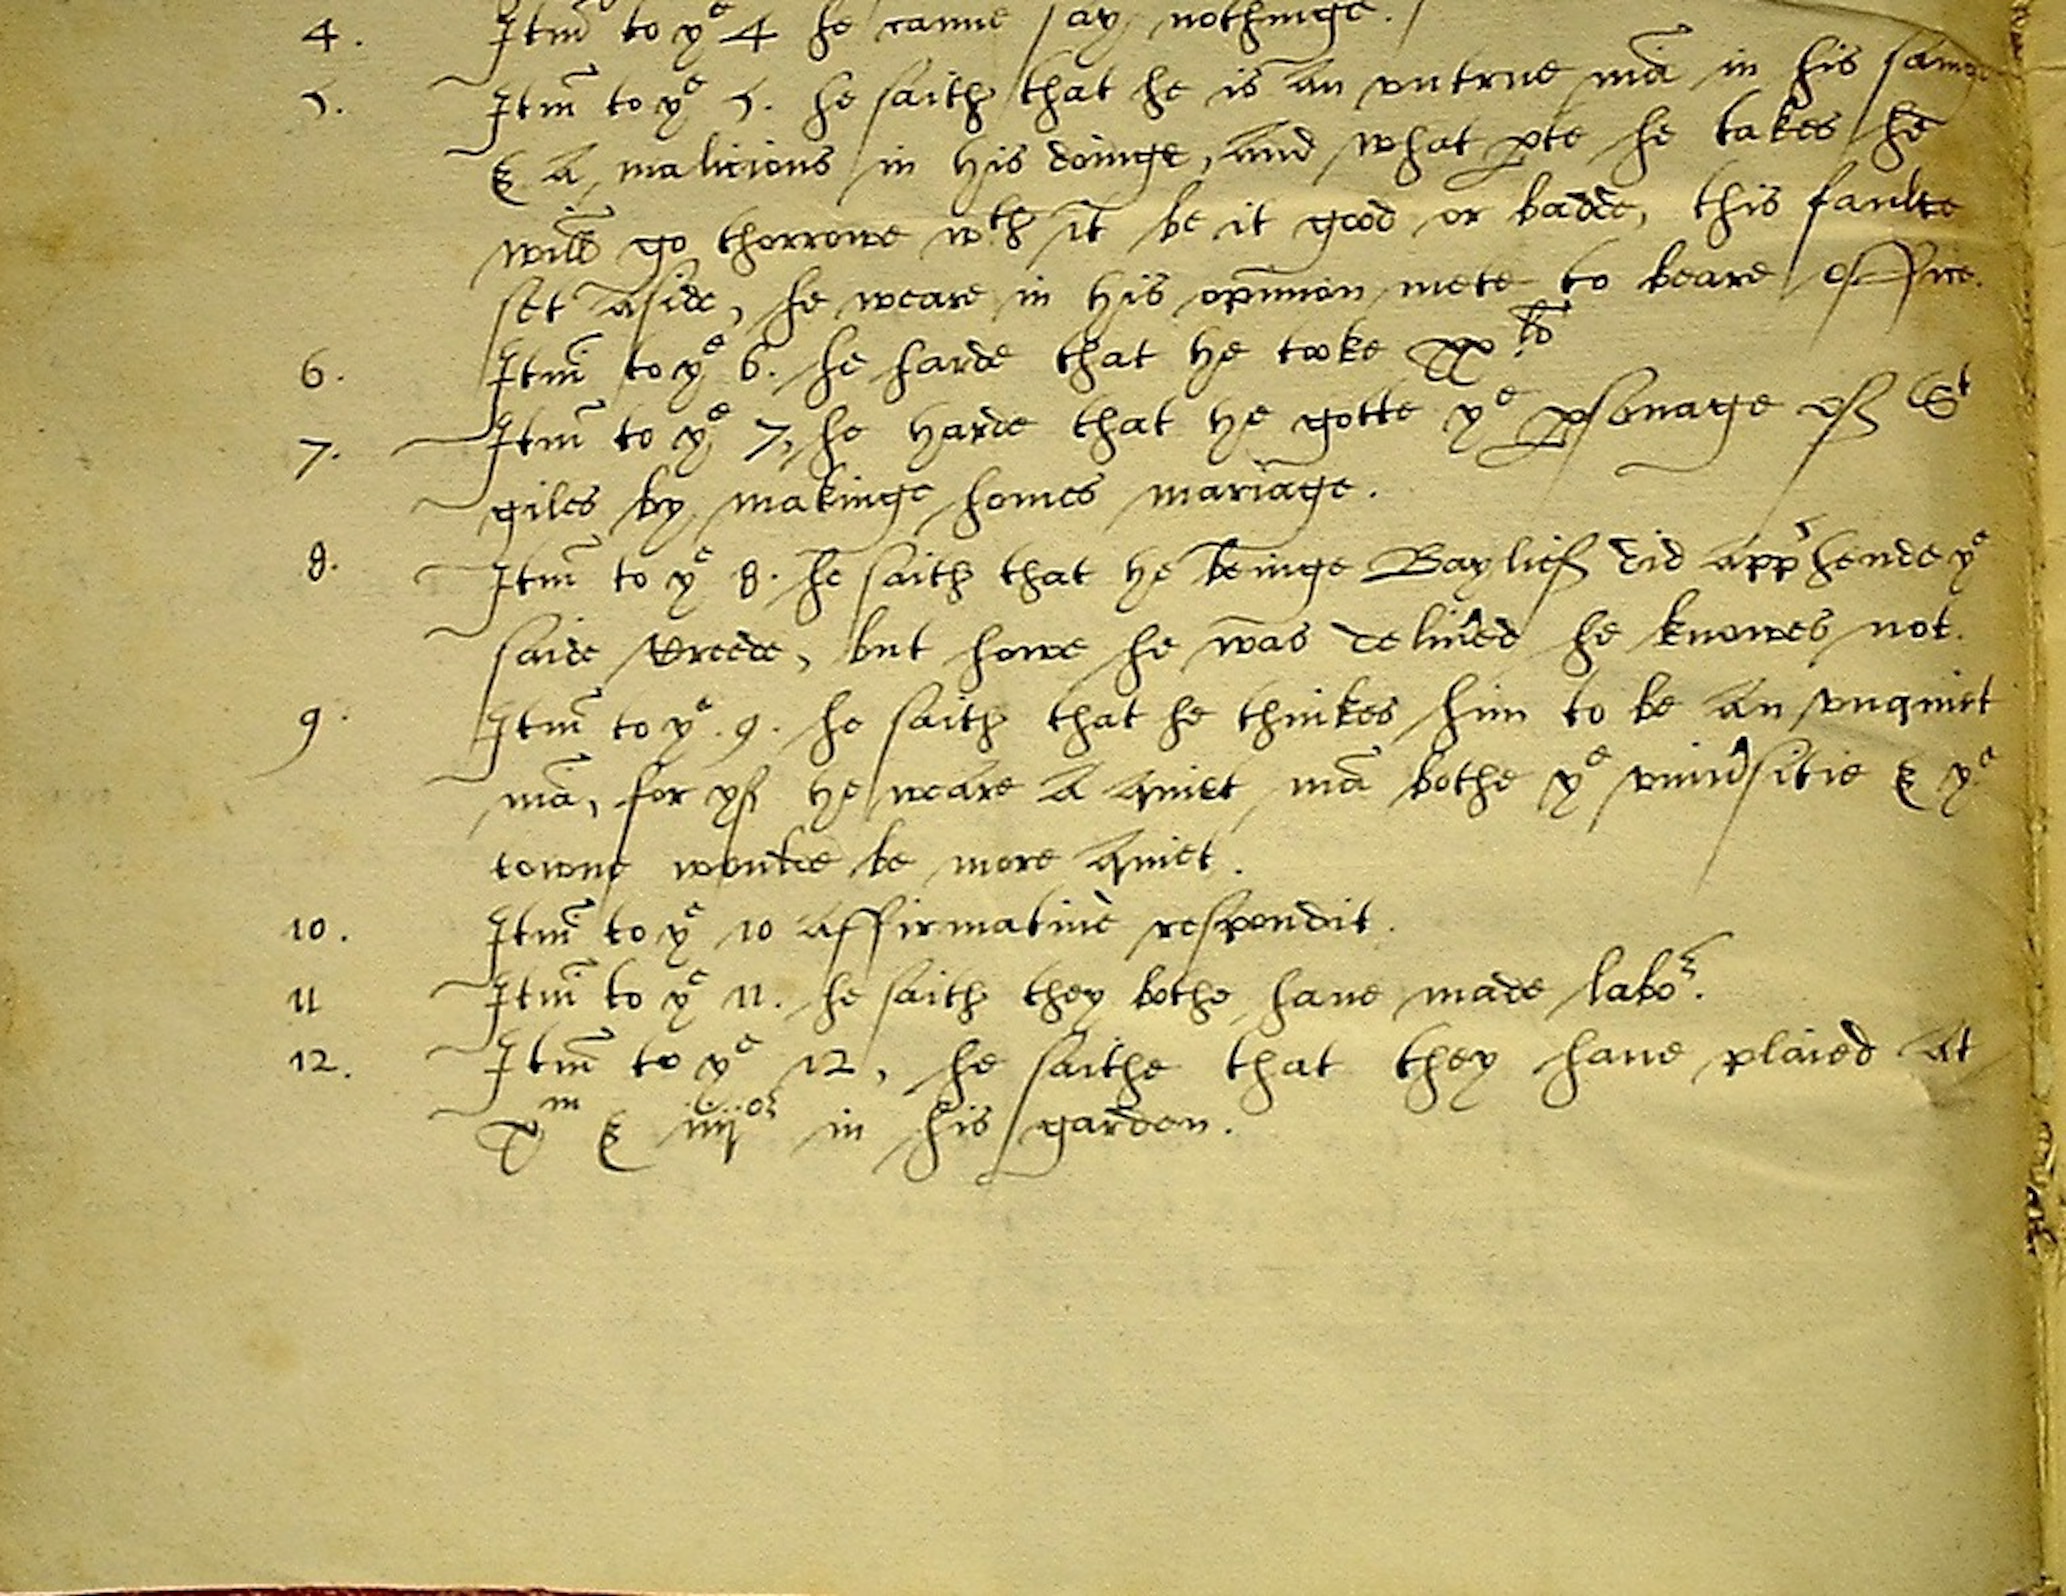 4. Itm̃ to yᵉ 4 he canne say nothinge.
5. Itm̃ to yᵉ 5. he saith that he is an vntrue mā in his sainge
& a malicious in his doinge, and what pte he takes he
will go thorrowe wᵗʰ it be it good or badde, this faulte
set aside, he weare in his opinion mete to beare office.
6. Itm̃ to yᵉ 6. he harde that he tooke xxˡⁱ
7. Itm̃ to yᵉ 7, he harde that he gotte yᵉ psonage of Sᵗ
giles by makinge homes mariage.
8. Itm̃ to yᵉ 8. he saith that he beinge Baylief did appʳhende yᵉ
saide Reede, but howe he was deliũed he knowes not.
9. Itm̃ to yᵉ 9. he saith that he thinkes him to be an vnquiet
mā, for yf he weare a quiet mā bothe yᵉ vniũsitie & yᵉ
towne woulde be more quiet.
10. Itm̃ to yᵉ 10 affirmatiuè respondit.
11 Itm̃ to yᵉ 11. he saith they bothe haue made laboʳ.
12. Itm̃ to yᵉ 12, he saithe that they haue plaied at
vᵐ & iiijᵒʳ in his garden.